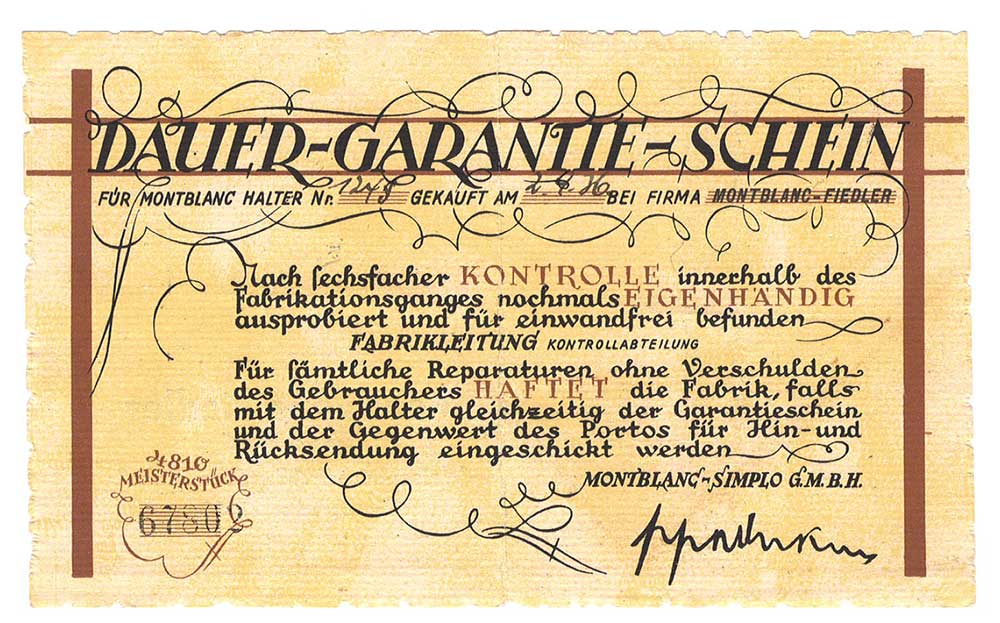 DAUER-GARANTIE-SCHEIN
FÜR MONTBLANC HALTER Nr. GEKAUFT AM BEI FIRMA MONTBLANC-FIEDLER
Nach sechsfacher KONTROLLE innerhalb des
Fabrikationsganges nochmals EIGENHÄNDIG
ausprobiert und für einwandfrei befunden
FABRIKLEITUNG KONTROLLABTEILUNG
Für sämtliche Reparaturen ohne Verschulden
des Gebrauchers HAFTET die Fabrik, falls
mit dem Halter gleichzeitig der Garantieschein
und der Gegenwert des Portos für Hin- und
Rücksendung eingeschickt werden
MONTBLANC-SIMPLO G.M.B.H.
4810
MEISTERSTÜCK